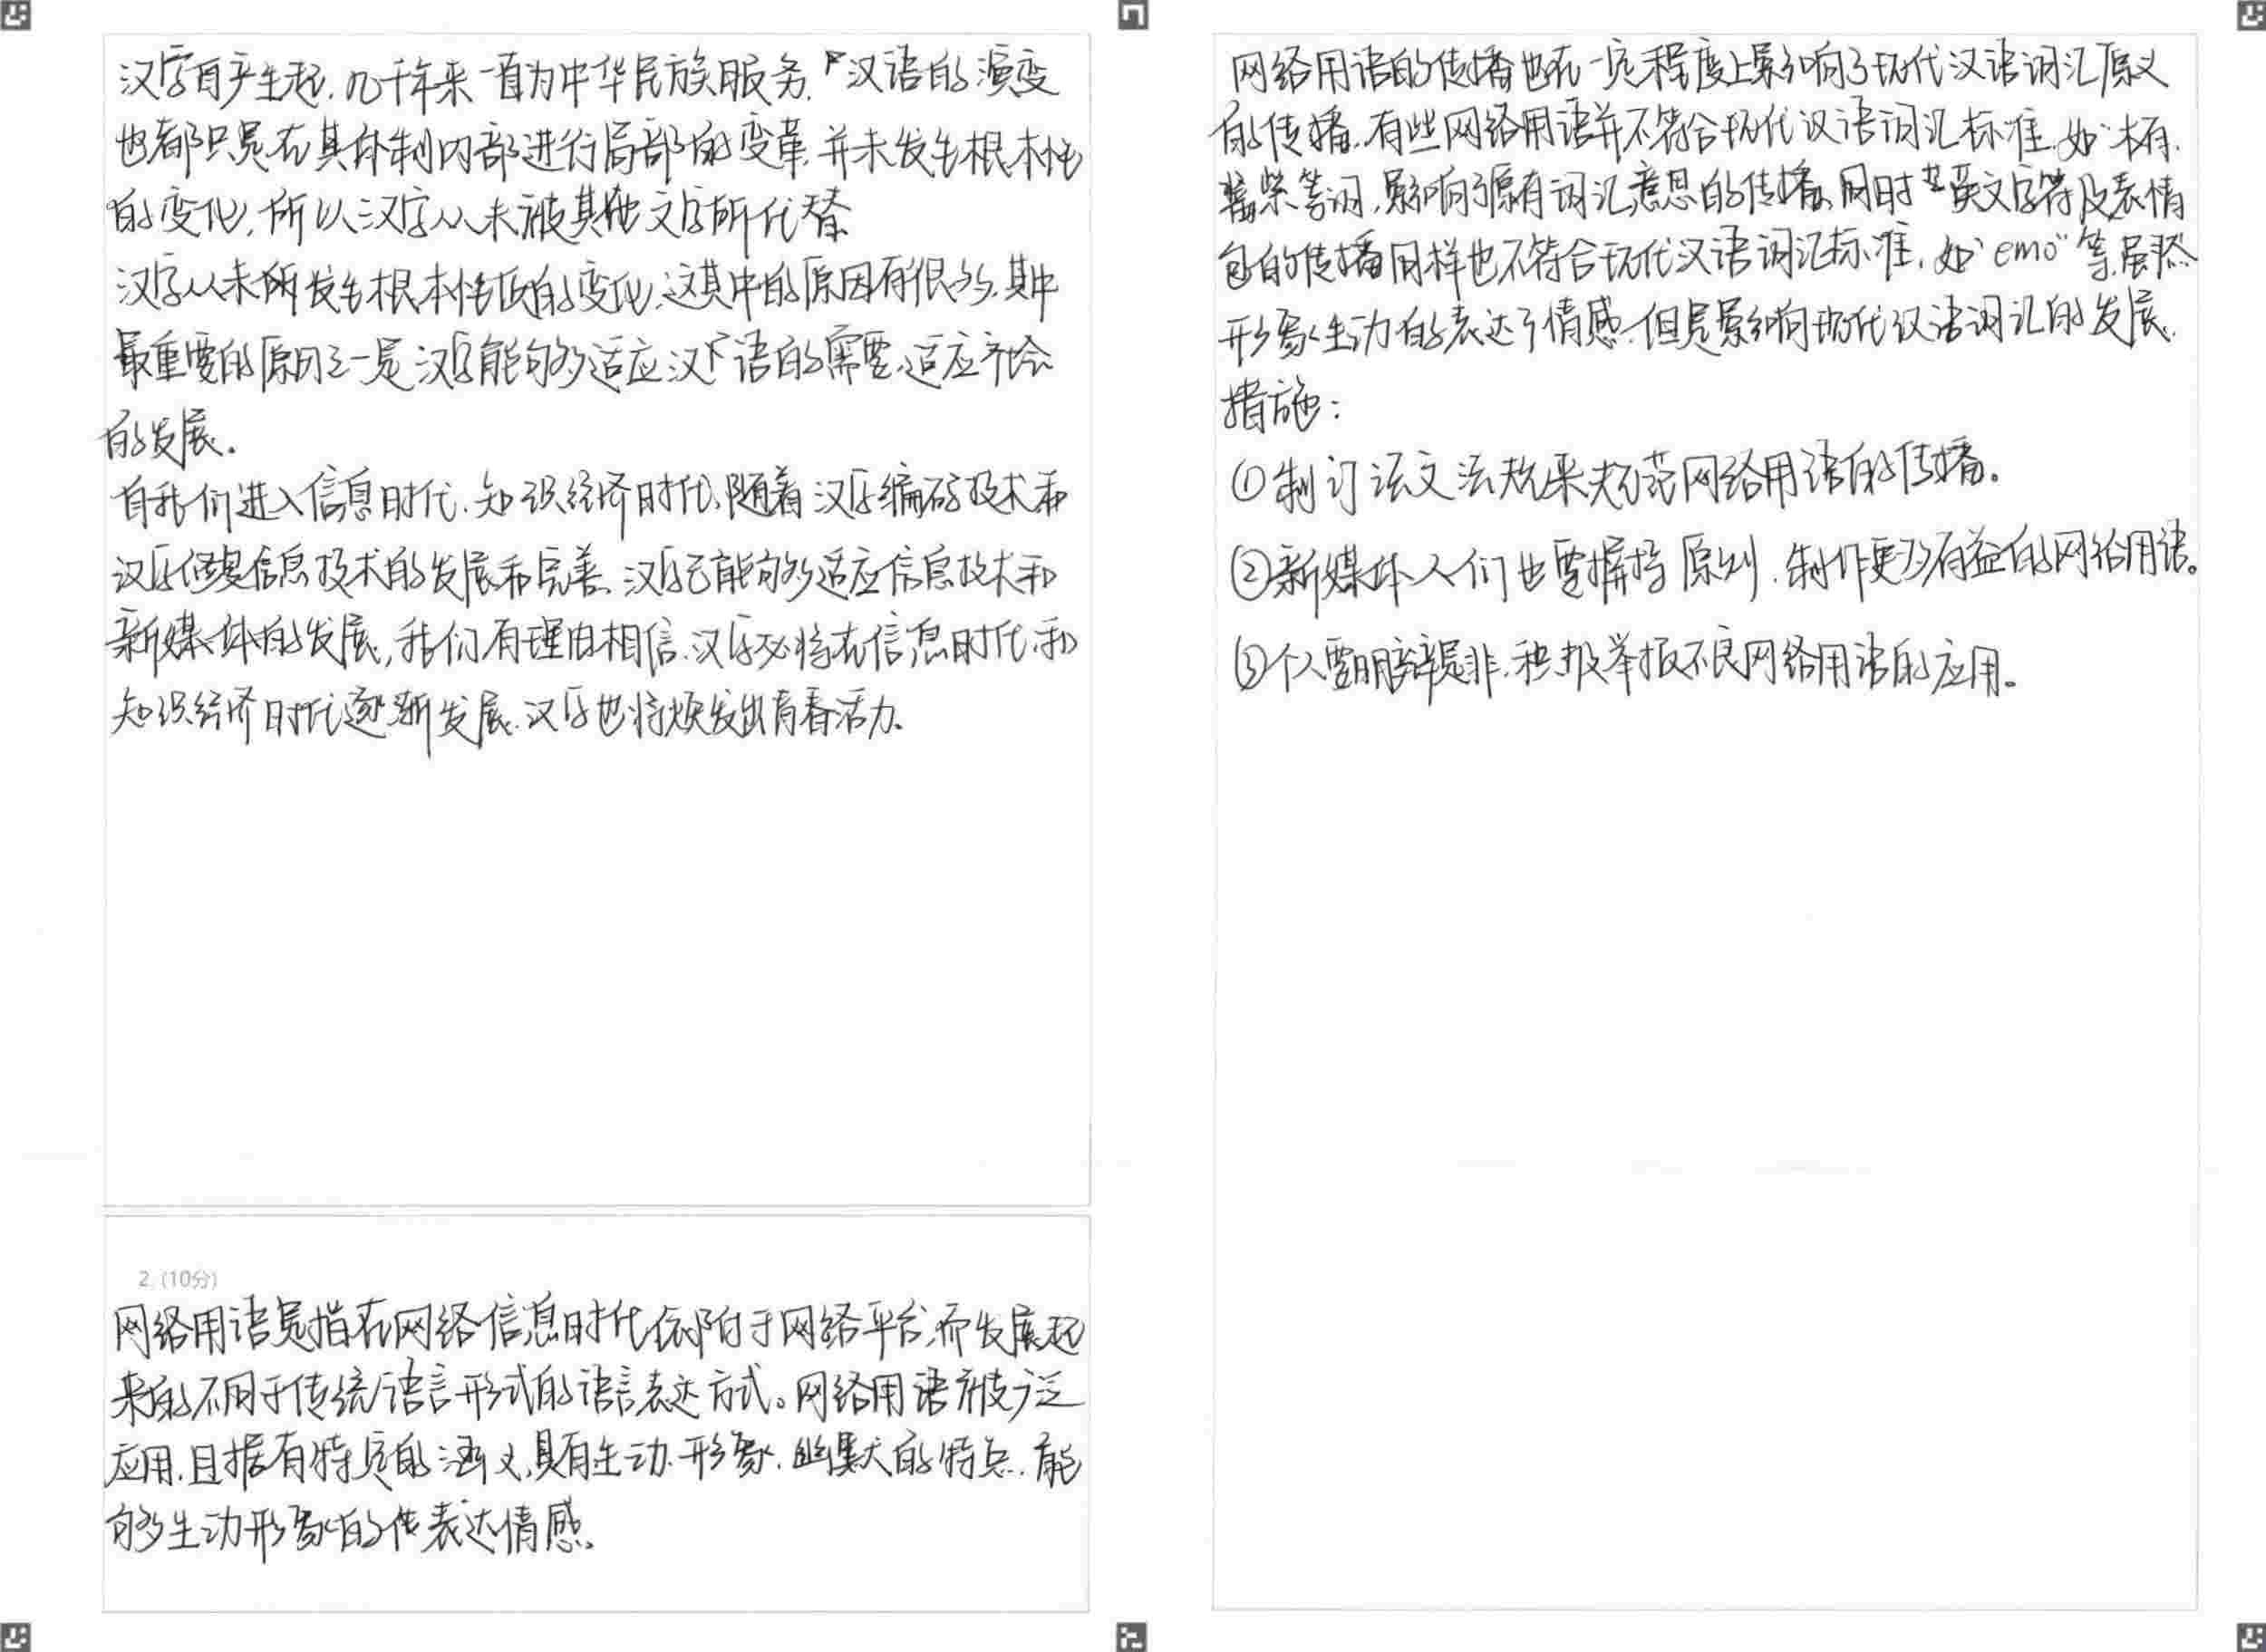 汉字自产生起,几千年来一直为中华民族服务,汉语的演变
也都只是在其体制内部进行局部的变革,并未发生根本性
的变化,所以汉字从未被其他文字所代替
汉字从未所发生根本性质的变化,这其中的原因有很多,其中
最重要的原因之一是汉字能够适应汉语的需要,适应社会
的发展.
自我们进入信息时代、知识经济时代,随着汉字编码技术和
汉字信息技术的发展和完善,汉字已能够适应信息技术和
新媒体的发展,我们有理由相信,汉字必将在信息时代和
知识经济时代逐渐发展,汉字也将焕发出青春活力。
2. (10分)
网络用语是指在网络信息时代依附于网络平台,而发展起
来的不同于传统语言形式的语言表达方式。网络用语被广泛
应用,且据有特定的涵义,具有生动、形象、幽默的特点,能
够生动形象的传表达情感。
网络用语的传播也在一定程度上影响了现代汉语词汇原义
的传播,有些网络用语并不符合现代汉语词汇标准,如"木有、
紫等词,影响了原有词汇意思的传播,同时英文字符及表情
包的传播同样也不符合现代汉语词汇标准,如"emo"等,虽然
形象生动的表达了情感,但是影响现代汉语词汇的发展.
措施:
①制订语文法规来规范网络用语的传播。
②新媒体人们也要握持原则,制作更多有益的网络用语。
③个人要明辨是非,积极举报不良网络用语的应用。